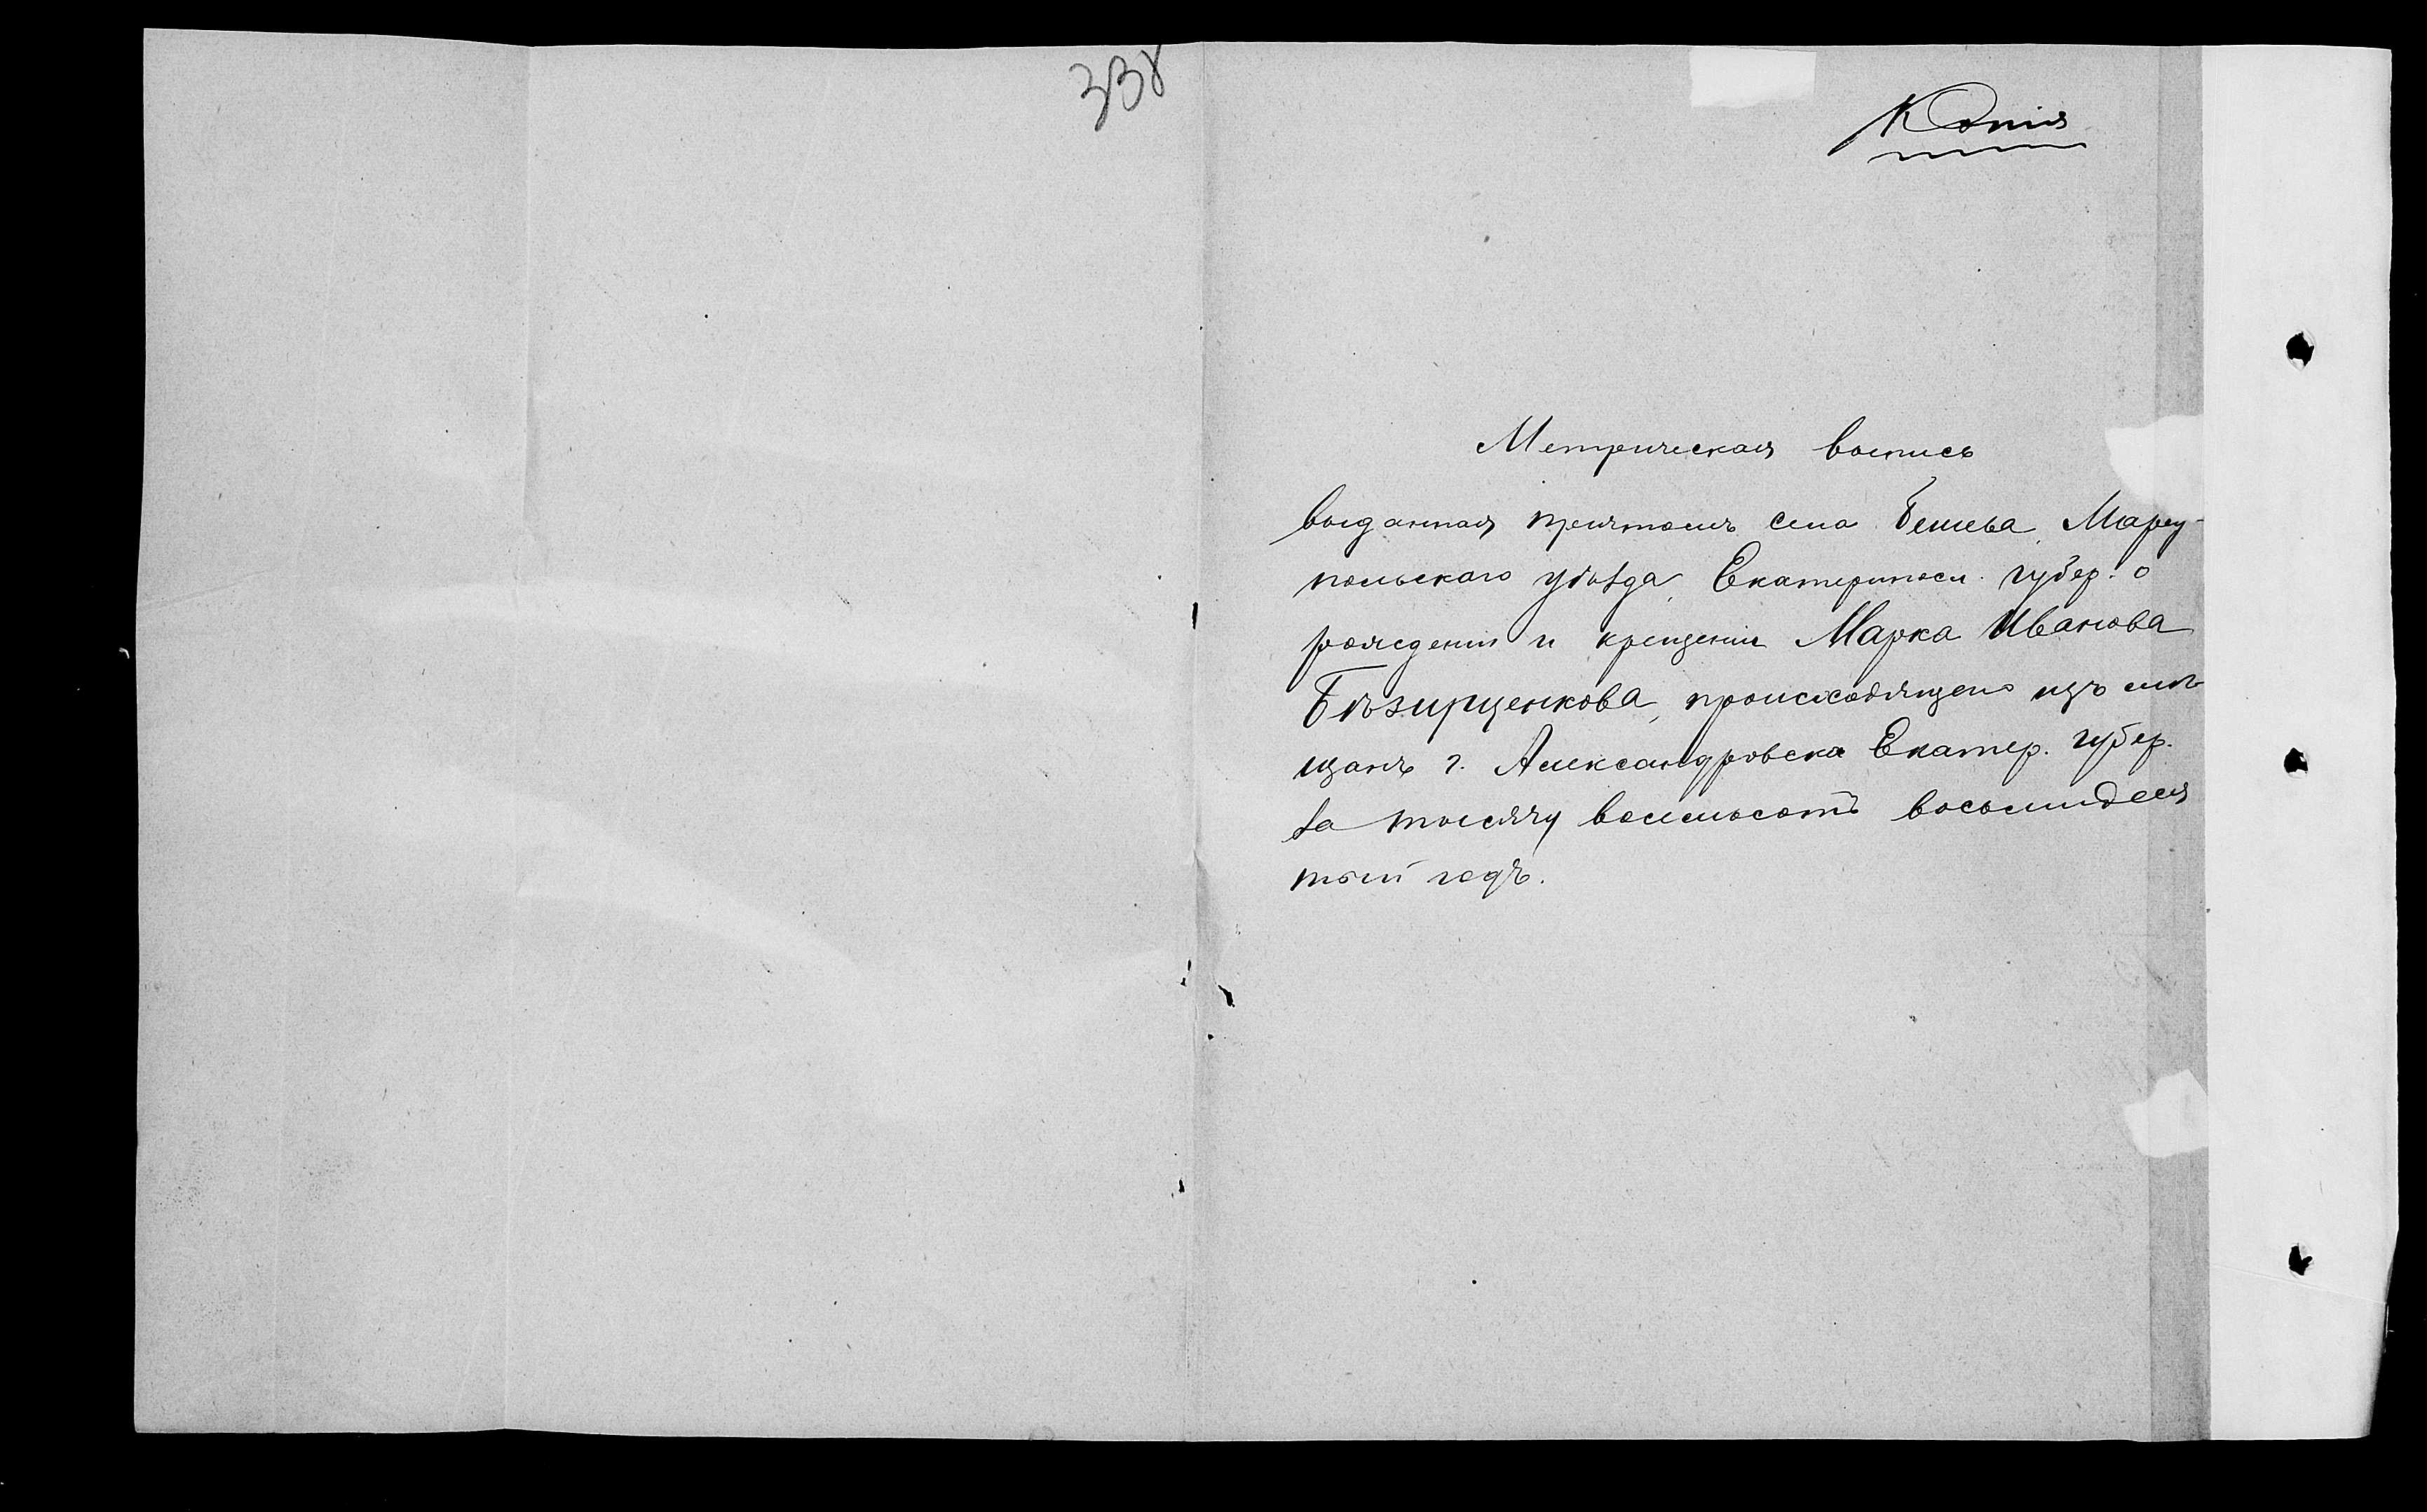 338
Копія
Метрическая выпись
выданная причтомъ села Бешева, Марiу-
польскаго уѣзда, Екатериносл. губер. о
рожденіи и крещеніи Марка Иванова
Бѣзирценкова, происходящаго изъ мѣ-
щанъ г. Александровска Екатер. губер.
за тысячу восемьсотъ восьмидеся
тый годъ.